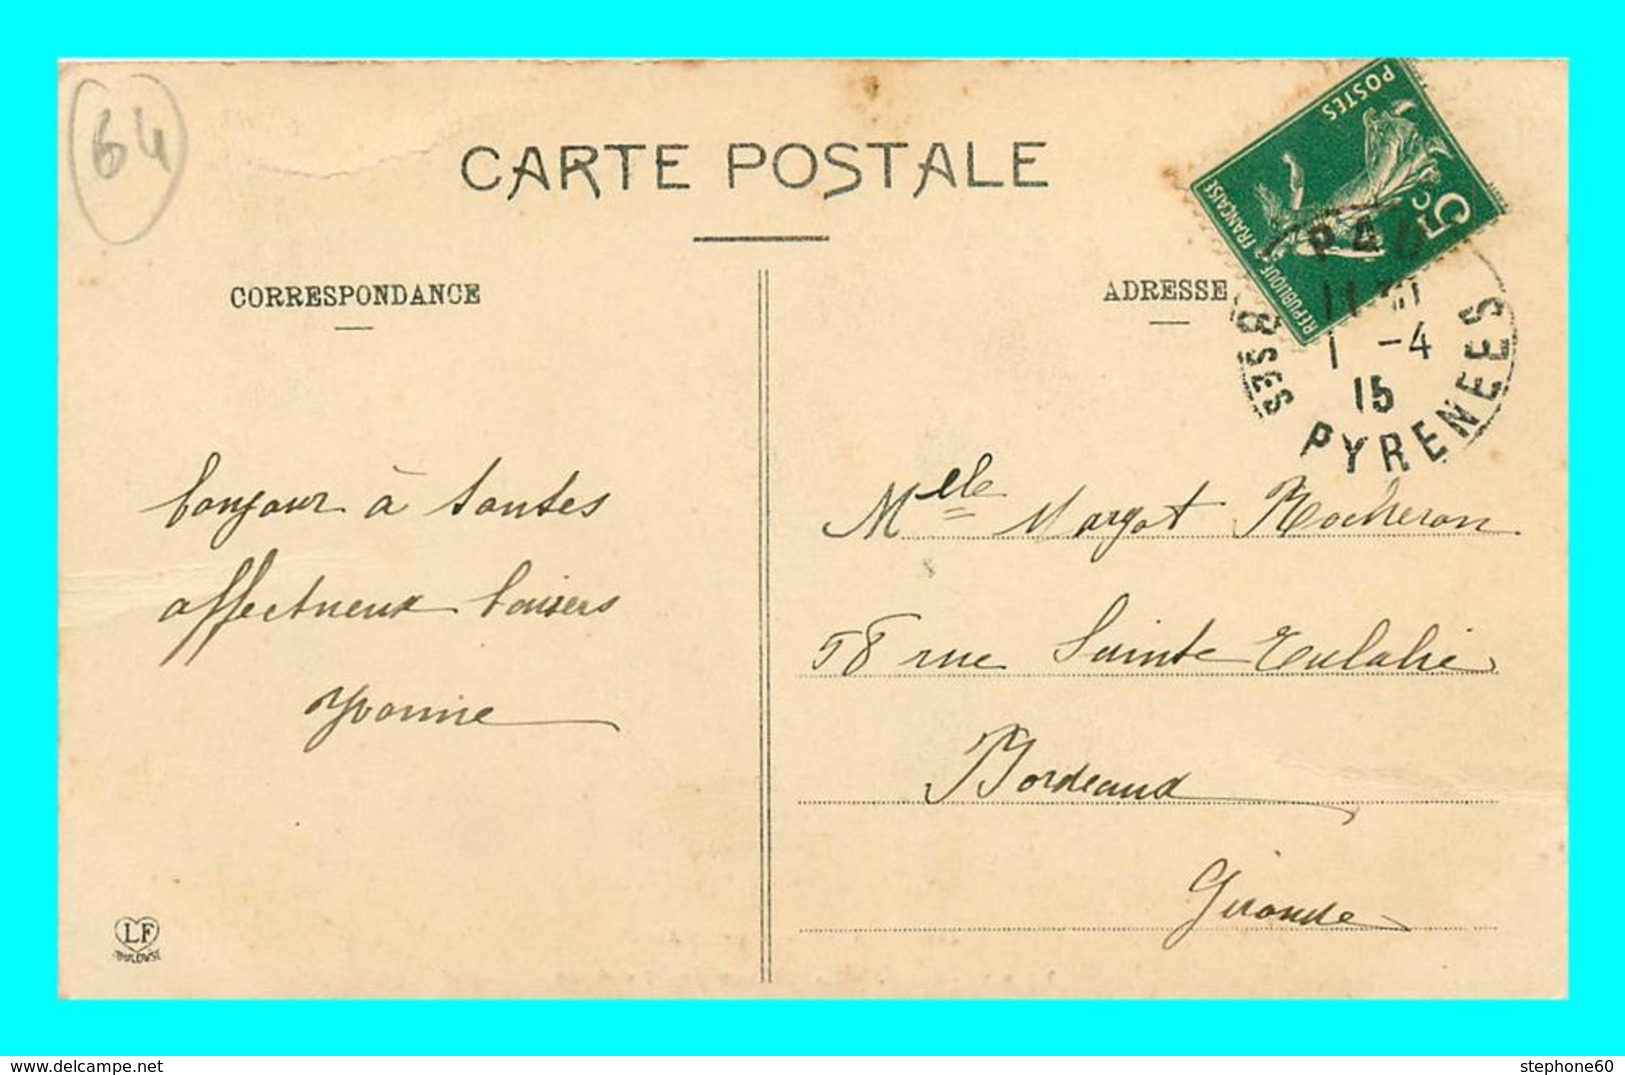 64
CARTE POSTALE
CORRESPONDANCE
ADRESSE
POSTES
RÉPUBLIQUE FRANÇAISE
5c
PAU
1 -4
15
BSSES PYRENEES
bonjour à toutes
affectueux baisers
Yvonne
Melle Margot Rocheron
58 rue Sainte Eulalie
Bordeaux
Gironde
LF
TOULOUSE
stephone60